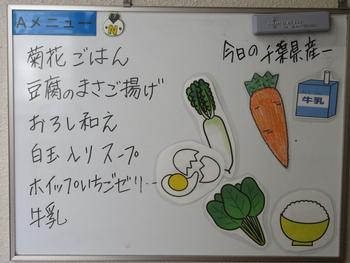 Aメニュー
N
菊花ごはん
豆腐のまさご揚げ
おろし和え
白玉入りスープ
ホイップいちごゼリー
牛乳
今日の千葉県産ー
牛乳